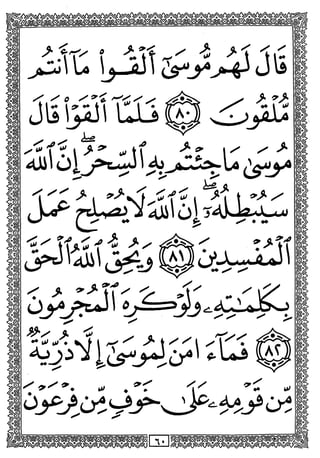 قَالَ لَهُم مُّوسَىٰٓ أَلْقُوا۟ مَآ أَنتُم
مُّلْقُونَ ﴿٨٠﴾ فَلَمَّآ أَلْقَوْا۟ قَالَ
مُوسَىٰ مَا جِئْتُم بِهِ ٱلسِّحْرُ ۖ إِنَّ ٱللَّهَ
سَيُبْطِلُهُۥٓ ۖ إِنَّ ٱللَّهَ لَا يُصْلِحُ عَمَلَ
ٱلْمُفْسِدِينَ ﴿٨١﴾ وَيُحِقُّ ٱللَّهُ ٱلْحَقَّ
بِكَلِمَـٰتِهِۦ وَلَوْ كَرِهَ ٱلْمُجْرِمُونَ
﴿٨٢﴾ فَمَآ ءَامَنَ لِمُوسَىٰٓ إِلَّا ذُرِّيَّةٌ
مِّن قَوْمِهِۦ عَلَىٰ خَوْفٍ مِّن فِرْعَوْنَ
٦٠